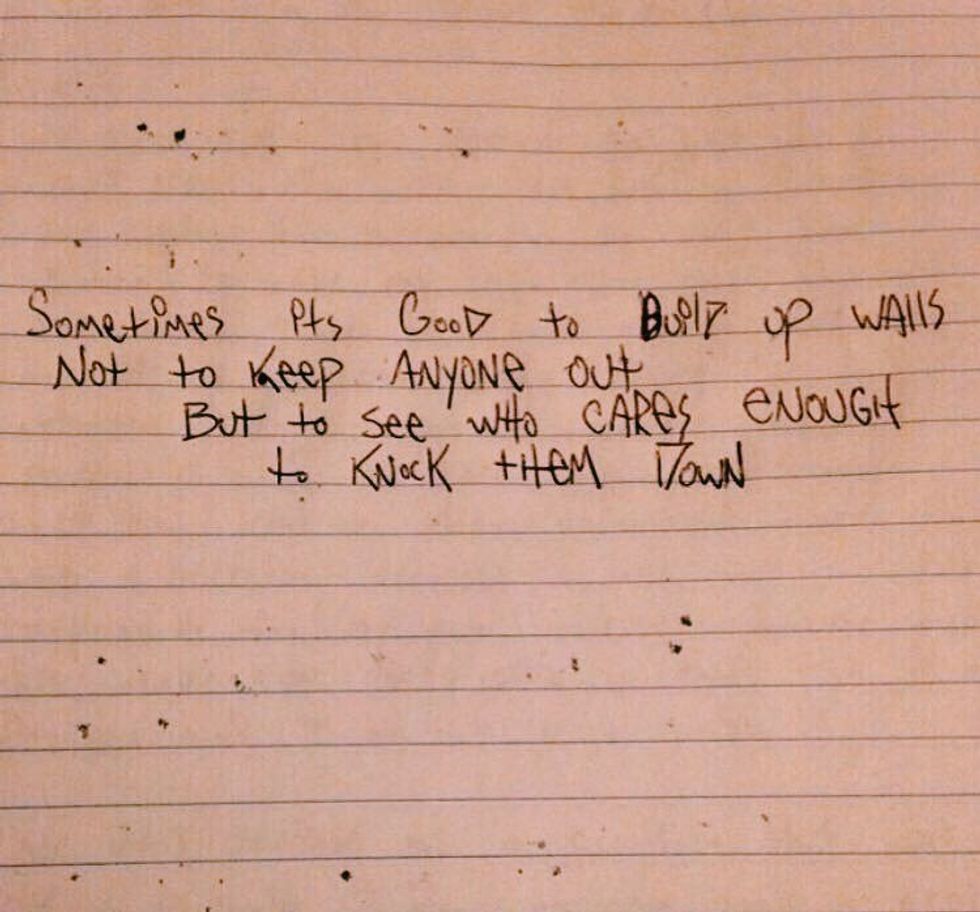 Sometimes its GooD to Build up WAlls
Not to Keep ANYONE out
But to see wHo CARes eNOUGH
to KNocK tHeM DowN